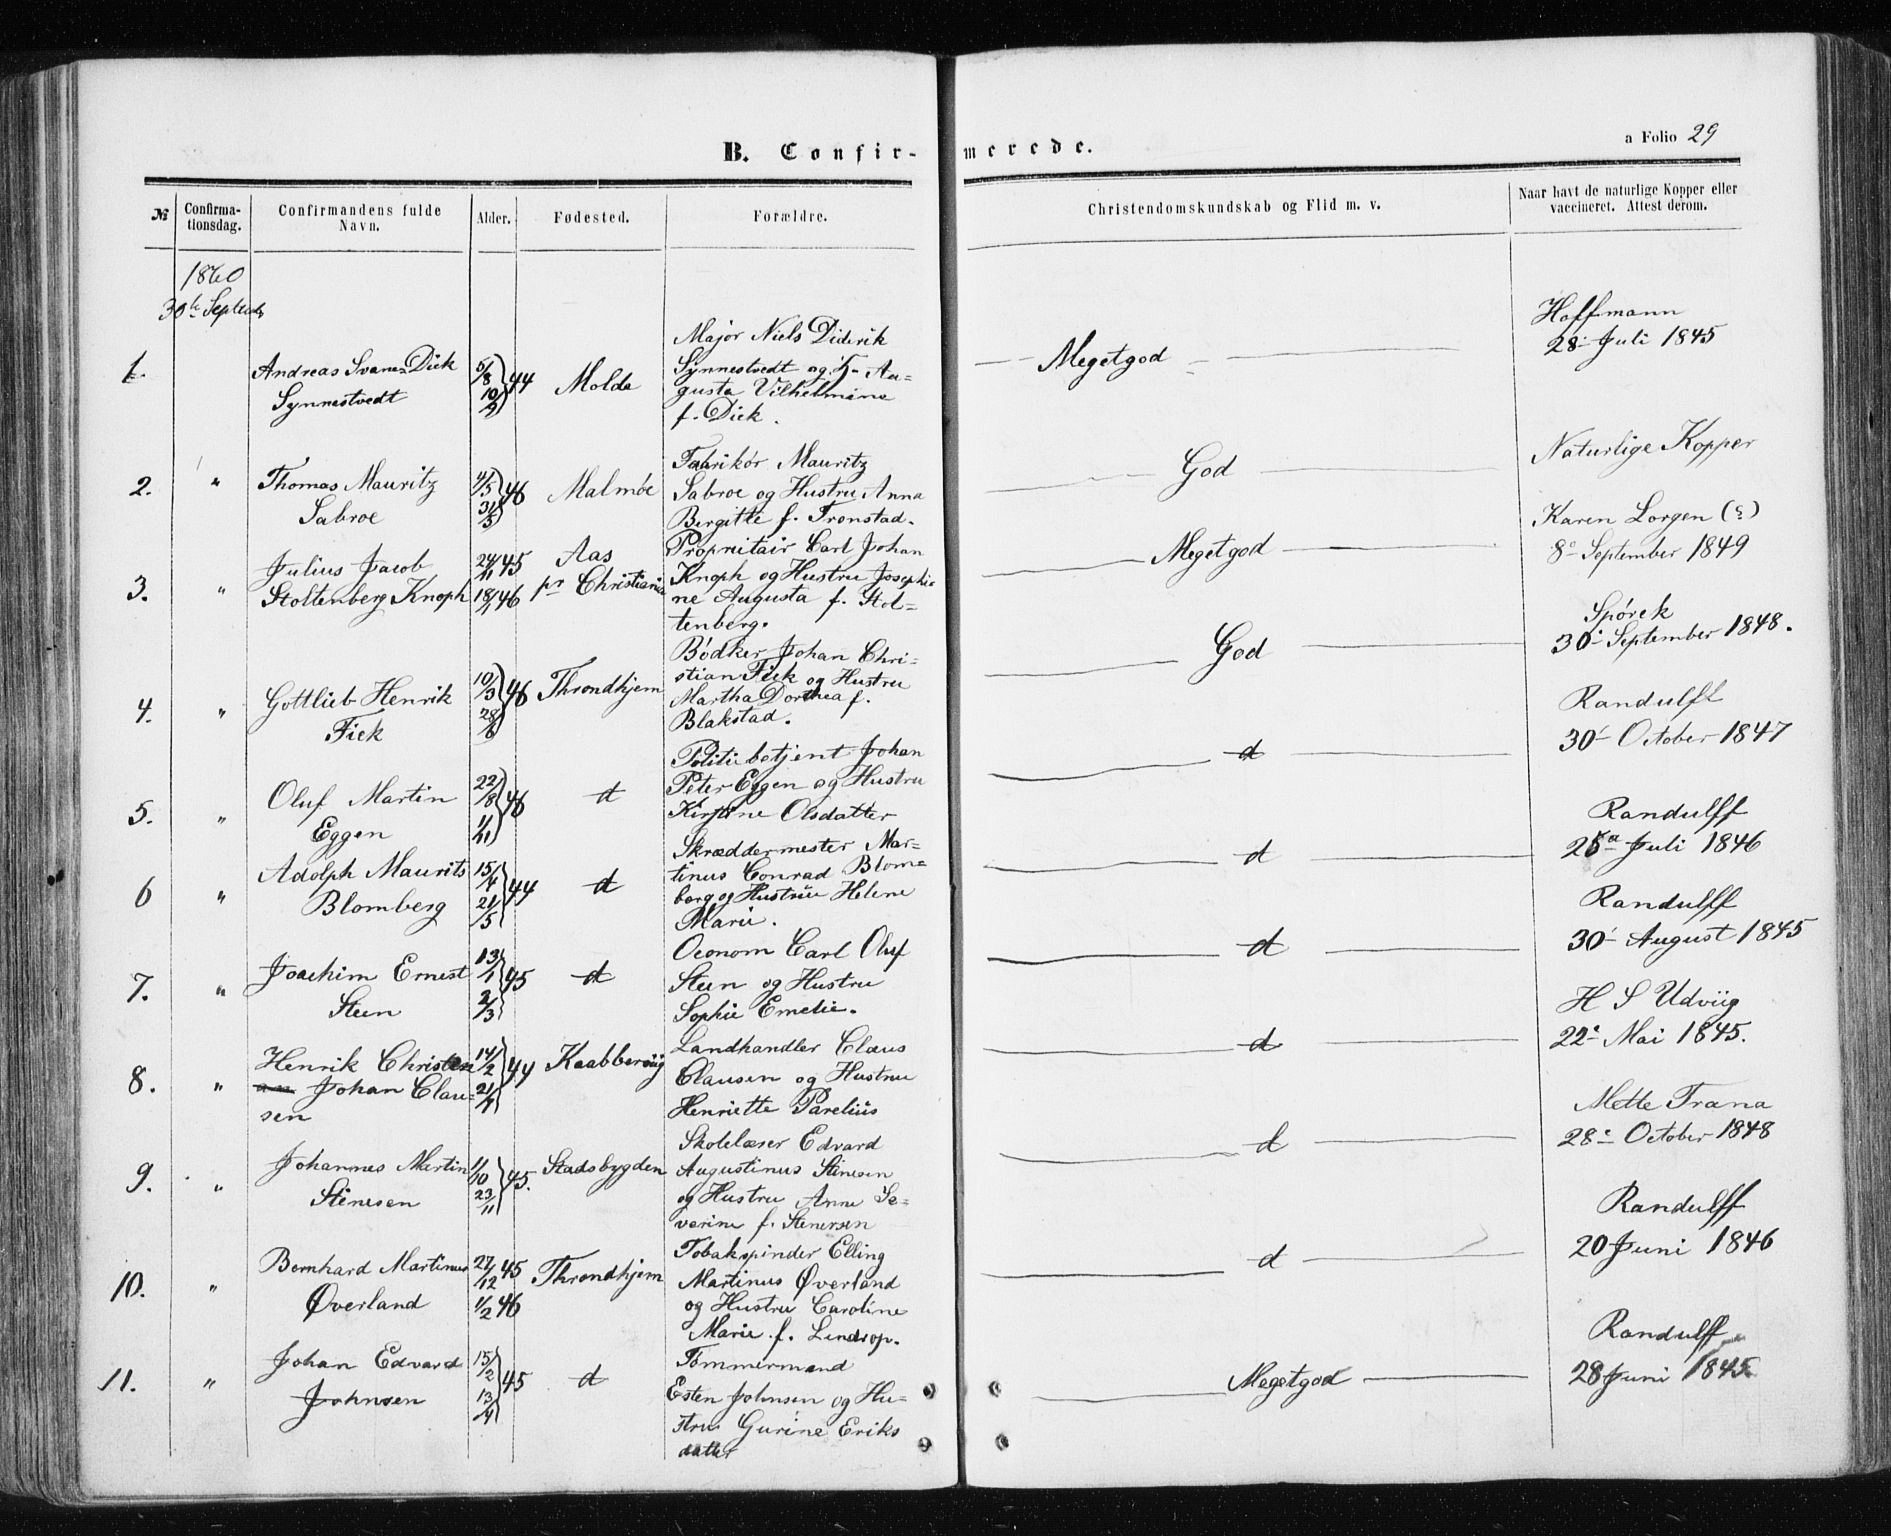 B. Confir-
merede.
a Folio 29
№
Confirma-
tionsdag.
Confirmandens fulde
Navn.
Alder.
Fødested.
Forældre.
Christendomskundskab og Flid m. v.
Naar havt de naturlige Kopper eller
vaccineret. Attest derom.
1860
30te Septemb
1.
Andreas Svane Dick
Synnestvedt
5/8 44
10/9
Molde
Major Niels Diderik
Synnestvedt og H. Au-
gusta Vilhelmine
f. Dick.
Megetgod
Hoffmann
28 Juli 1845
2.
"
Thomas Mauritz
Sabroe
4/5 46
31/5
Malmöe
Fabrikör Mauritz
Sabroe og Hustru Anna
Bergitte f. Tronstad.
God
Naturlige Kopper
3.
"
Julius Jacob
Stoltenberg Knoph
24/11 45
18/1 46
Aas
pr Christiania
Proprietair Carl Johan
Knoph og Hustru Josephi-
ne Augusta f. Stol-
tenberg.
Megetgod
Karen Lorgen (?)
8 September 1849
4.
"
Gottlieb Henrik
Fick
10/3 46
28/6
Throndhjem
Bödker Johan Chri-
stian Fick og Hustru
Martha Dorthea f.
Blakstad.
God
Spörck
30 September 1848.
5.
"
Oluf Martin
Eggen
22/8 46
1/11
d
Politibetjent Johan
Peter Eggen og Hustru
Kirstine Olsdatter
d
Randulff
30 October 1847
6
"
Adolph Maurits
Blomberg
15/4 44
21/5
d
Skræddermester Mar-
tinus Conrad Blom-
berg og Hustru Helene
Marie.
d
Randulff
Juli 1846
7.
"
Joachim Ernest
Steen
13/1 45
2/3
d
Oeonom Carl Oluf
Steen og Hustru
Sophie Emelie.
d
Randulff
30 August 1845
8.
"
Henrik Christen
Johan Clau-
sen
14/2 44
21/4
Kaabberviig
Landhandler Claus
Clausen og Hustru
Henriette Parelius
d
H S Udviig
22 Mai 1845.
9.
"
Johannes Martin
Stenesen
11/10 45.
23/11
Stadsbygden
Skolelærer Edvard
Augustinus Stenesen
og Hustru Anne Se-
verine f. Stenersen
d
Mette Trana
28 October 1848
10.
"
Bernhard Martinus
Øverland
27/12 45
1/2 46
Throndhjem
Tobakspinder Elling
Martinus Øverland
og Hustru Caroline
Marie f. Lindrop.
d
Randulff
20 Juni 1846
11.
"
Johan Edvard
Johnsen
15/2 45
13/4
d
Tömmermand
Esten Johnsen og Hu-
stru Gurine Eriks
datter
Megetgod
Randulff
28 Juni 1845